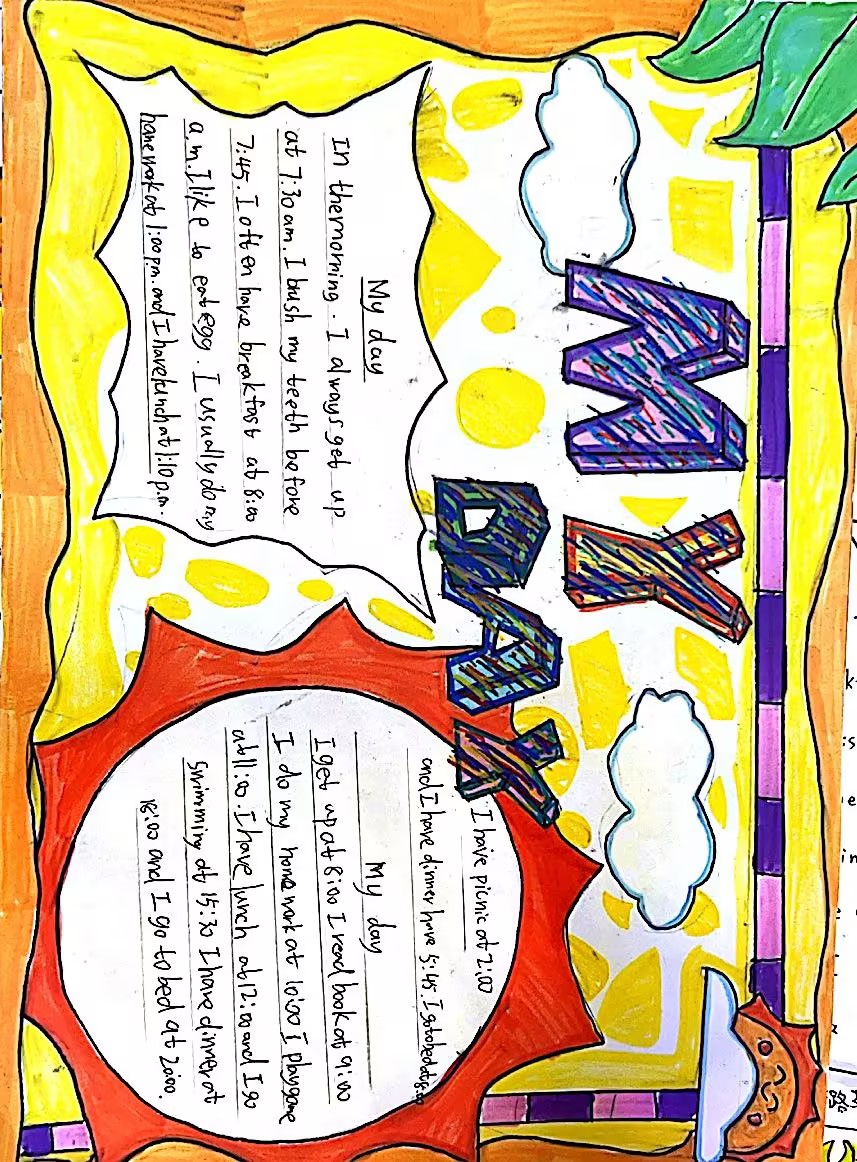 MY
DAY
My day
In themorning. I always get up
at 7:30 am. I brush my teeth before
7:45. I often have breakfast at 8:00
a.m. I like to eat egg. I usually do my
homework at 1:00 p.m. and I have lunch at 1:10 p.m.
I have picnic at 2:00
and I have dinner have 5:45. I go to bed at 8:00
My day
I get up at 8:00 I read book at 9:00
I do my homework at 10:00 I play game
at 11:00. I have lunch at 12:00 and I go
swimming at 15:30 I have dinner at
18:00 and I go to bed at 20:00.